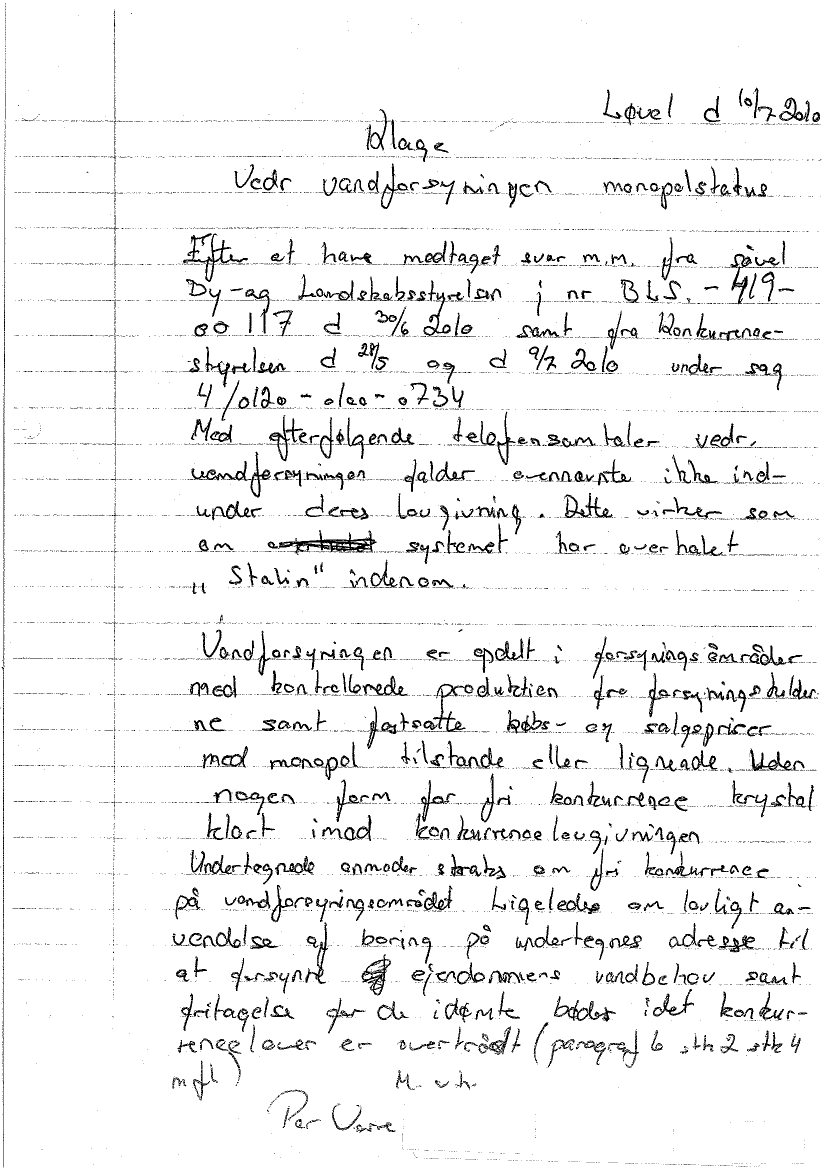 Løvel d 10/7 2010
Klage
Vedr vandforsyningen monopolstatus
Efter at have modtaget svar m.m. fra såvel
By-og Landskabsstyrelsen j nr BLS. - 419-
00117 d 30/6 2010 samt fra Konkurrence-
styrelsen d 28/5 og d 9/7 2010 under sag
4/0120-0100-0734
Med efterfølgende telefonsamtaler vedr.
vandforsyningen falder ovennævnte ikke ind-
under deres lovgivning. Dette virker som
om systemet har overhalet
"Stalin" indenom.
Vandforsyningen er opdelt i forsyningsområder
med kontrollerede produktion fra forsyningskilder
ne samt fastsatte købs- og salgspriser
med monopol tilstande eller lignende. Uden
nogen form for fri konkurrence krystal
klart imod konkurrencelovgivningen
Undertegnede anmoder straks om fri konkurrence
på vandforsyningsområdet Ligeledes om lovligt an-
vendelse af boring på undertegnes adresse til
at forsynre ejendommens vandbehov samt
fritagelse for de idømte bøder idet konkur-
rencelover er overtrådt (paragraf 6 stk 2 stk 4
mfl) M. v.h.
Per